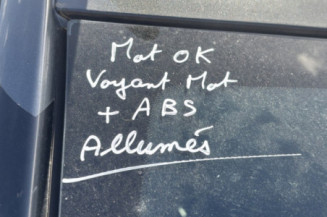 Mot OK
Voyant Mot
+ ABS
Allumés